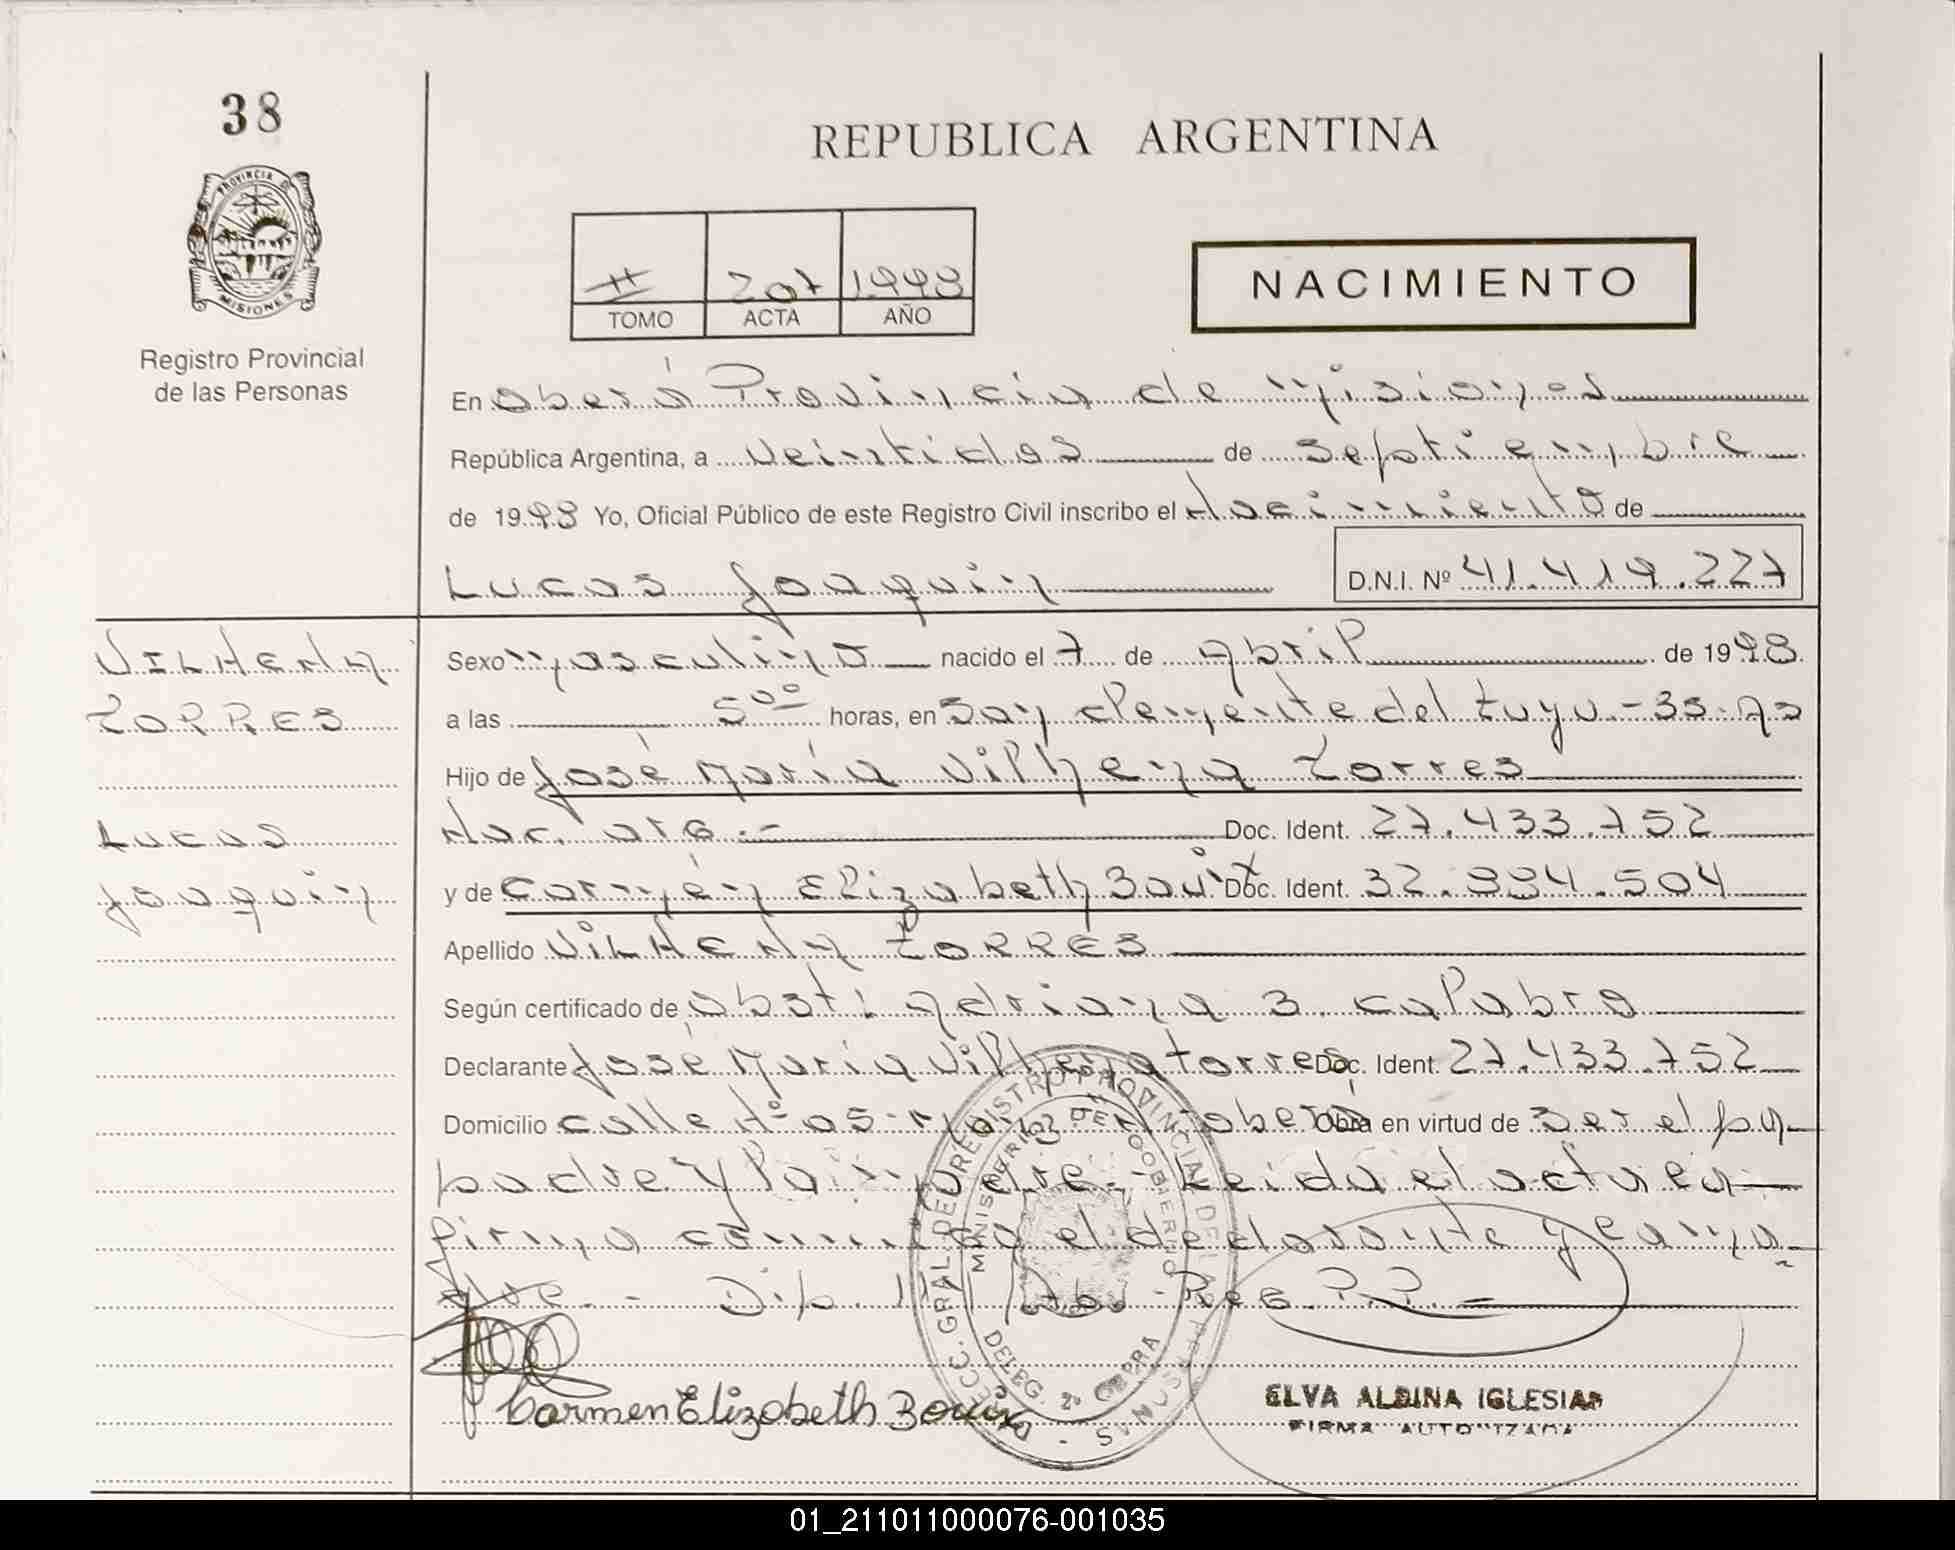 38
REPUBLICA ARGENTINA
PROVINCIA DE
MISIONES
Registro Provincial
de las Personas
II 207 1998
TOMO ACTA AÑO
NACIMIENTO
En Oberá Provincia de Misiones
República Argentina, a veintidos de septiembre
de 1998 Yo, Oficial Público de este Registro Civil inscribo el Nacimiento de
Lucas Joaquin D.N.I. Nº 41.419.227
VILHENA
TORRES
Lucas
Joaquin
Sexo masculino nacido el 7 de Abril de 1998
a las 5⁰⁰ horas, en San Clemente del tuyu.- Bs. As
Hijo de José María Vilhena Torres
Nac. arg.- Doc. Ident. 27.433.752
y de Carmén Elizabeth Doc. Ident. 32.884.504
Apellido VILHENA TORRES
Según certificado de obst. Adriana B. Calabro
Declarante José María Vilhena torres Doc. Ident. 27.433.752
Domicilio calle Nº 05 Oberá Obra en virtud de Ser el pa
padre y la madre.- Leída el acta la
firma conmigo el declarante y la ma
dre.-
Carmen Elizabeth
DIRECC. GRAL. DEL REGISTRO PROVINCIAL DE LAS PERSONAS
MINISTERIO DE GOBIERNO
DELEG. 2º
ELVA ALBINA IGLESIAS
FIRMA AUTORIZADA
01_211011000076-001035